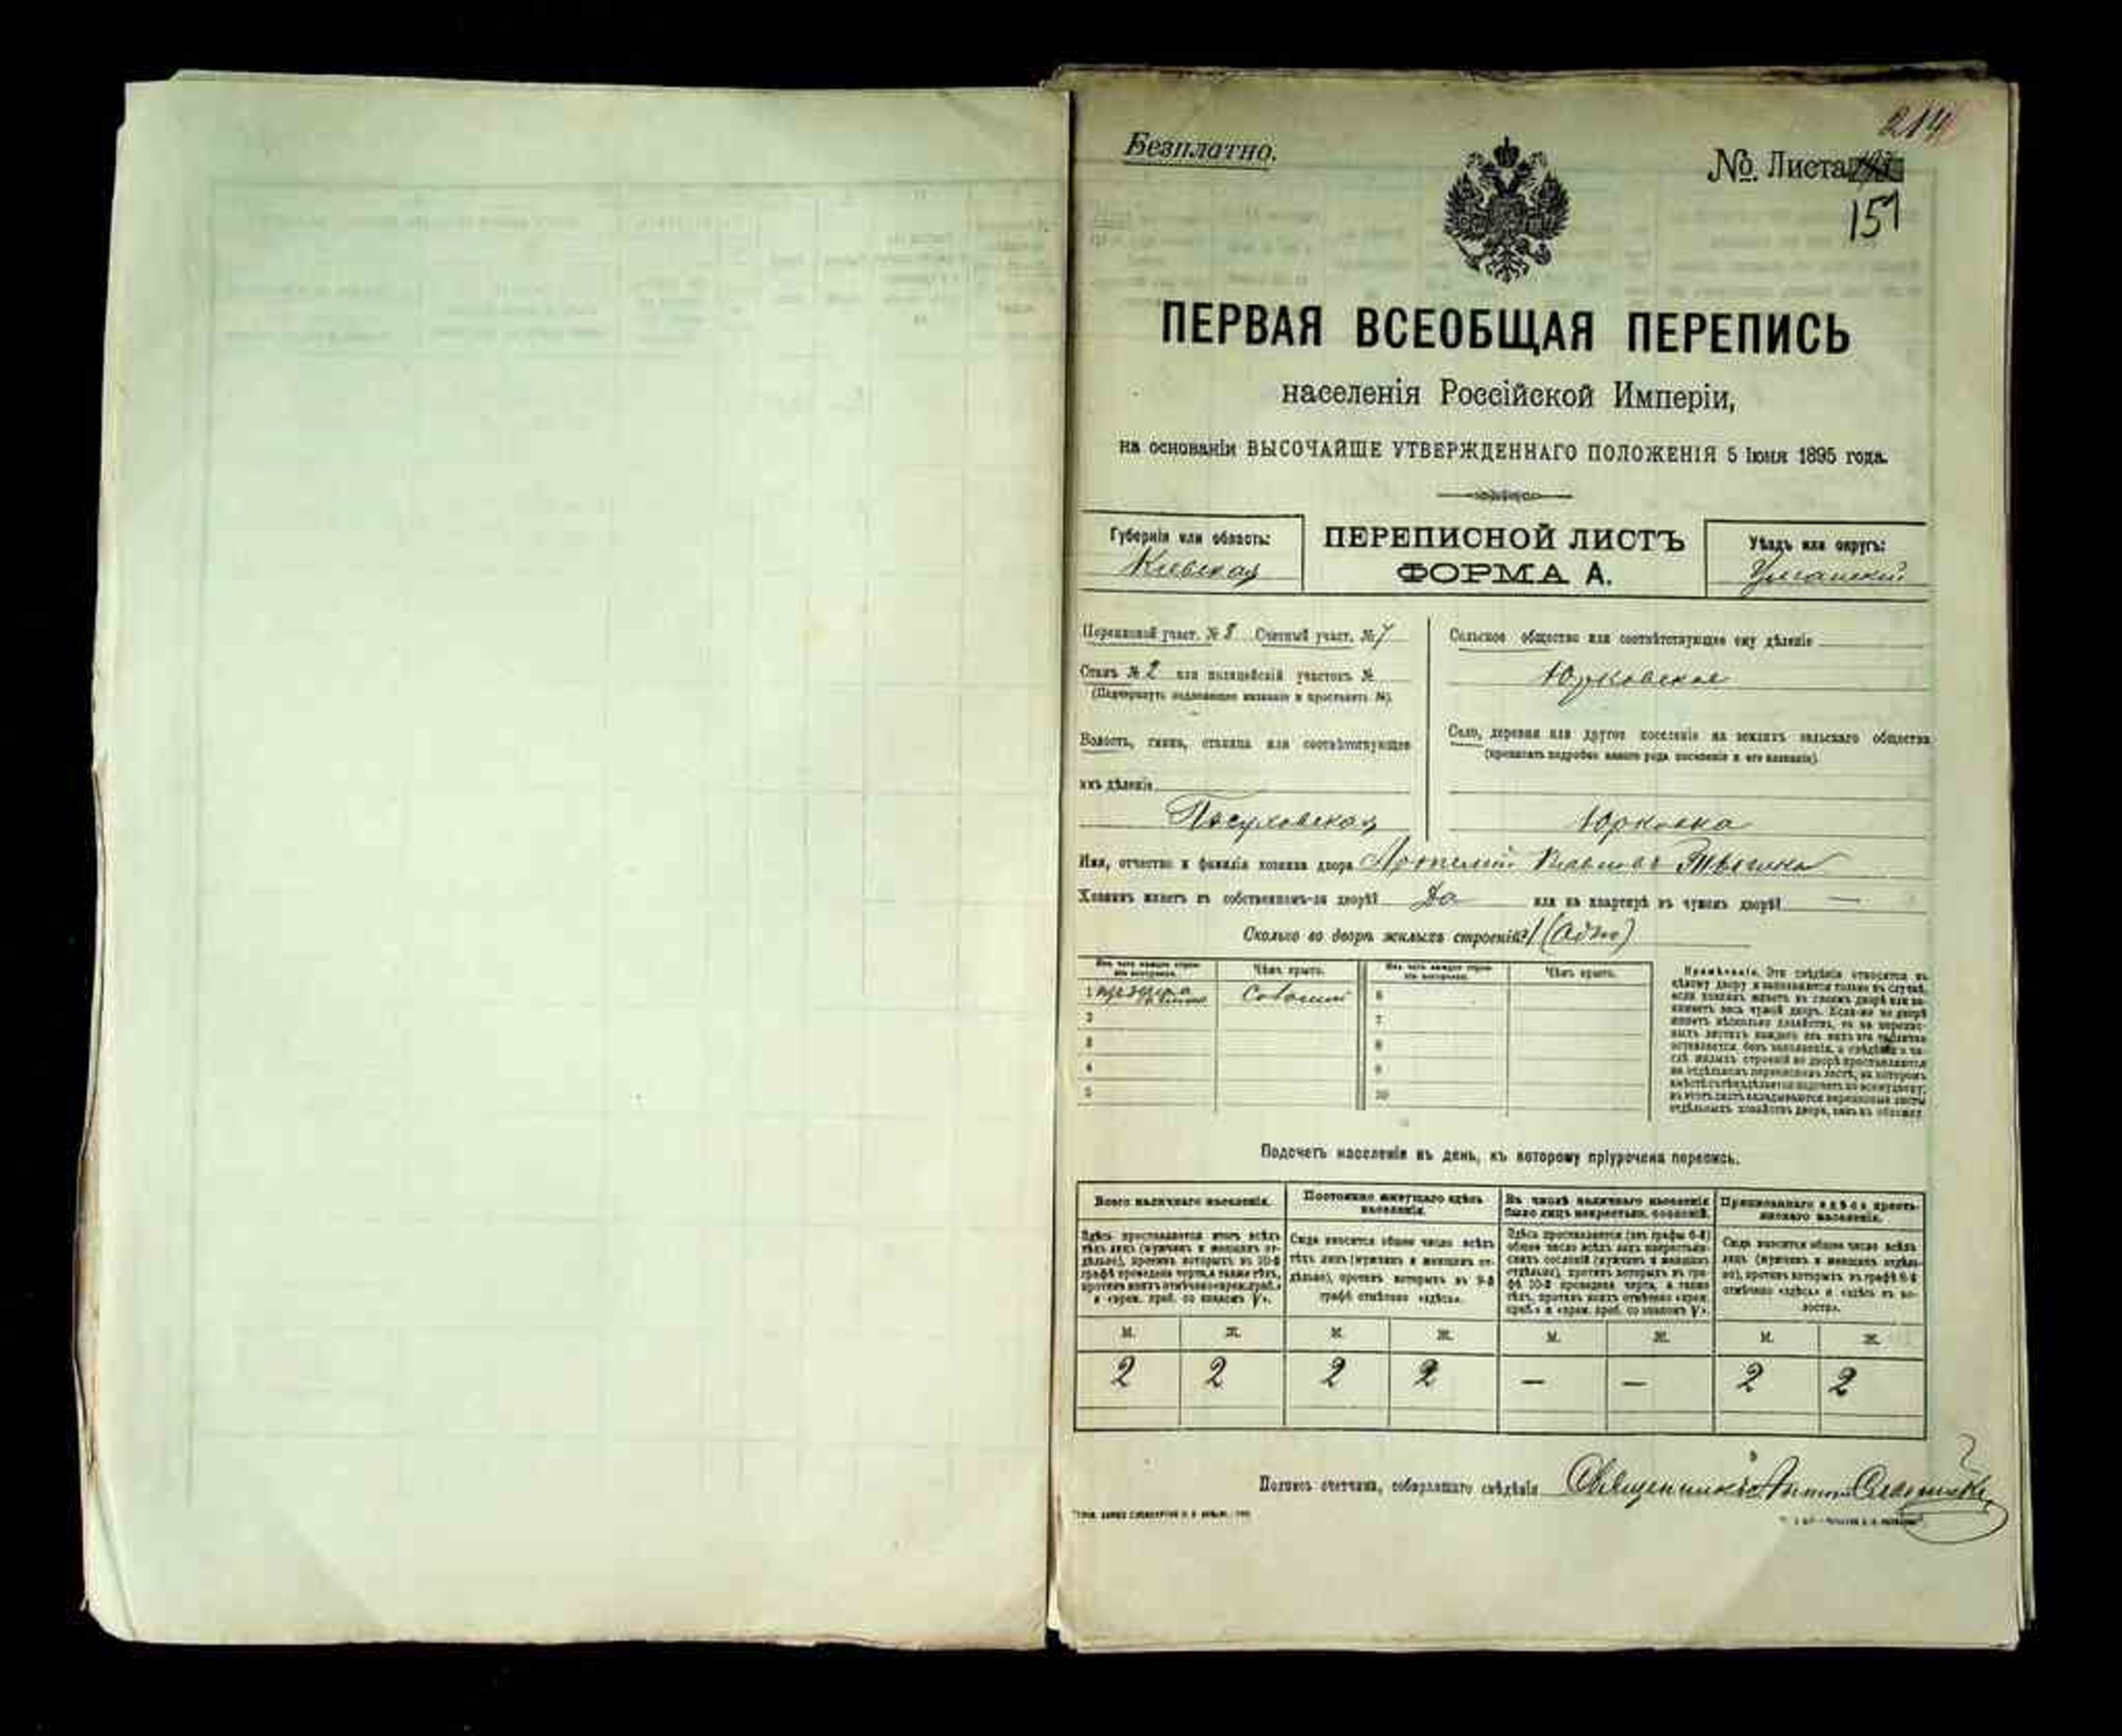 214
Безплатно.
№ Листа
151
ПЕРВАЯ ВСЕОБЩАЯ ПЕРЕПИСЬ
населенія Россійской Имперіи,
на основаніи ВЫСОЧАЙШЕ УТВЕРЖДЕННАГО ПОЛОЖЕНІЯ 5 Іюня 1895 года.
Губернія или область:
Кіевская
ПЕРЕПИСНОЙ ЛИСТЪ
ФОРМА А.
Уѣздъ или округъ:
Уманскій
Переписной участ. № 8 Счетный участ. № 7
Станъ № 2 или полицейскій участокъ №
(Подчеркнуть подлежащее названіе и проставить №).
Волость, гмина, станица или соотвѣтствующее
имъ дѣленіе
Посуховская
Сельское общество или соотвѣтствующее ему дѣленіе
Юрковское
Село, деревня или другое поселеніе на земляхъ сельскаго общества
(прописать подробно какого рода поселеніе и его названіе).
Юрковка
Имя, отчество и фамилія хозяина двора
Хозяинъ живетъ въ собственномъ-ли дворѣ? Да или на квартирѣ въ чужомъ дворѣ? —
Сколько во дворѣ жилыхъ строеній? 1 (Адно)
Изъ чего каждое строеніе построено.
Чѣмъ крыто.
Изъ чего каждое строеніе построено.
Чѣмъ крыто.
1 Соломой 6
2 7
3 8
4 9
5 10
Примѣчаніе. Эти свѣдѣнія относятся къ
цѣлому двору и заполняются только въ случаѣ,
если хозяинъ живетъ въ своемъ дворѣ или за-
нимаетъ весь чужой дворъ. Если-же во дворѣ
имѣетъ нѣсколько хозяйствъ, то на перепис-
ныхъ листахъ каждаго изъ нихъ эта табличка
оставляется безъ заполненія, а свѣдѣнія о чи-
слѣ жилыхъ строеній во дворѣ проставляются
на отдѣльномъ переписномъ листѣ, на которомъ
вмѣстѣ съ тѣмъ дѣлается подсчетъ по всему двору;
въ этотъ листъ вкладываются переписные листы
отдѣльныхъ хозяйствъ двора, какъ въ обложку
Подсчетъ населенія въ день, къ которому пріурочена перепись.
Всего наличнаго населенія.
Постоянно живущаго здѣсь населенія.
Въ числѣ наличнаго населенія было лицъ некрестьян. сословій.
Приписаннаго здѣсь крестьянскаго населенія.
Здѣсь проставляется итогъ всѣхъ
тѣхъ лицъ (мужчинъ и женщинъ от-
дѣльно), противъ которыхъ въ 10-й
графѣ проведена черта, а также тѣхъ,
противъ коихъ отмѣчено «врем. преб.»
и «врем. преб. со знакомъ V».
Сюда вносится общее число всѣхъ
тѣхъ лицъ (мужчинъ и женщинъ от-
дѣльно), противъ которыхъ въ 9-й
графѣ отмѣчено «здѣсь».
Здѣсь проставляется (изъ графы 6-й)
общее число всѣхъ лицъ некрестьян-
скихъ сословій (мужчинъ и женщинъ
отдѣльно), противъ которыхъ въ гра-
фѣ 10-й проведена черта, а также
тѣхъ, противъ коихъ отмѣчено «врем.
преб.» и «врем. преб. со знакомъ V».
Сюда вносится общее число всѣхъ
лицъ (мужчинъ и женщинъ отдѣль-
но), противъ которыхъ въ графѣ 8-й
отмѣчено «здѣсь» и «здѣсь въ во-
лости».
М. Ж. М. Ж. М. Ж. М. Ж.
2 2 2 2 — — 2 2
Подпись счетчика, собиравшаго свѣдѣнія Священникъ Антон